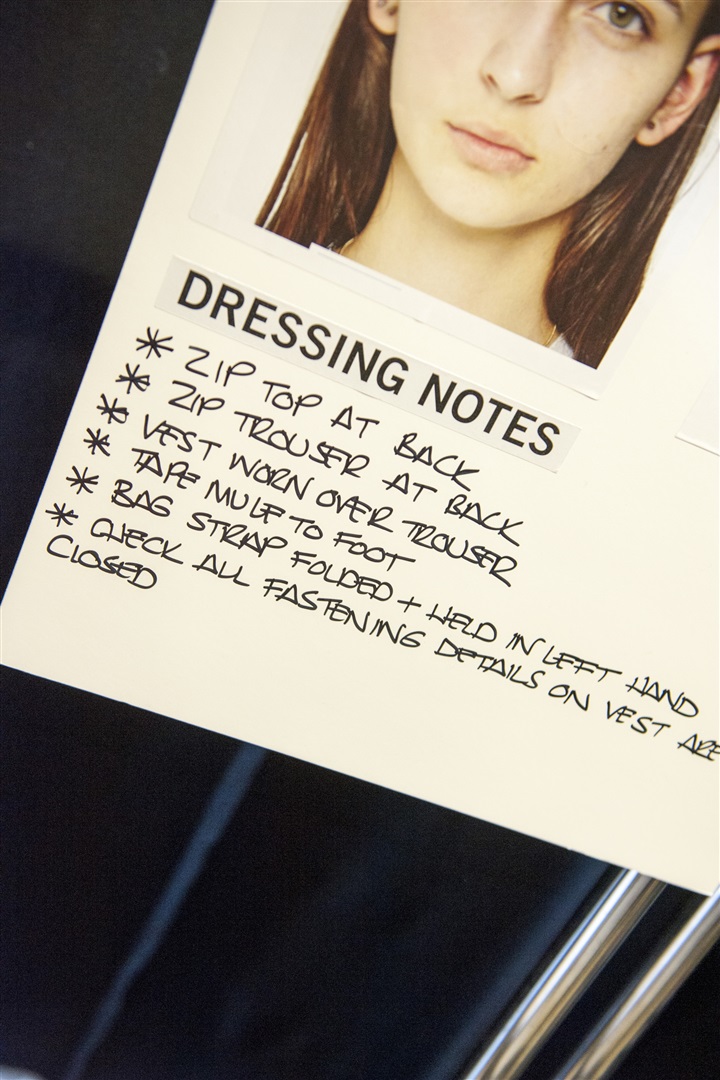 DRESSING NOTES
* ZIP TOP AT BACK
* ZIP TROUSER AT BACK
* VEST WORN OVER TROUSER
* TAPE MULE TO FOOT
* BAG STRAP FOLDED + HELD IN LEFT HAND
* CHECK ALL FASTENING DETAILS ON VEST ARE
CLOSED